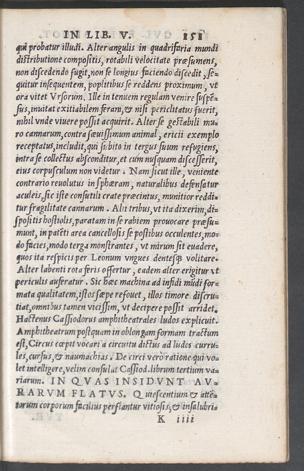 IN LIB. V. 151
quã probatur illudi. Alter angulis in quadrifaria mundi
distributione compositis, rotabili velocitate præsumens,
non discedendo fugit, non se longius faciendo discedit, se-
quitur insequentem, poplitibus se reddens proximum, vt
ora vitet Vrsorum. Ille in tenuem regulam venire suspẽ-
sus, irritat exitiabilem feram, & nisi periclitatus fuerit,
nihil vnde viuere possit acquirit. Alter se gestabili mu
ro cannarum, contra sæuissimum animal, ericii exemplo
receptatus, includit, qui subito in tergus suum refugiens,
intra se collectus absconditur, et cum nusquam discesserit,
eius corpusculum non videtur. Nam sicut ille, veniente
contrario reuolutus in sphæram, naturalibus defensatur
aculeis, sic iste consutili crate præcinctus, munitior reddi-
tur fragilitate cannarum. Alii tribus, vt ita dixerim, di-
spositis hostiolis, paratam in se rabiem prouocare præsu-
munt, in patẽti area cancellosis se postibus occulentes, mo-
do facies, modo terga monstrantes, vt mirum sit euadere,
quos ita respicis per Leonum vngues dentesq́; volitare.
Alter labenti rota feris offertur, eadem alter erigitur vt
periculis auferatur. Sic hæc machina ad infidi mudi for-
mata qualitatem, istos sæpe refouet, illos timore discru-
tiat, omnibus tamen vicissim, vt decipere possit arridet.
Hactenus Cassiodorus amphitheatrales ludos explicuit.
Amphitheatrum postquam in oblongam formam tractum
est, Circus cœpit vocari à circuitu dictus ad ludos curru-
les, cursus, & naumachias. De circi verò ratione qui vo-
let intelligere, velim consulat Cassiod. librum tertium va-
riarum. IN QVAS INSIDVNT AV-
RARVM FLATVS. Quiescentium & attẽ-
tarum corporum facilius perflantur vitiosis, & insalubria
K iiii